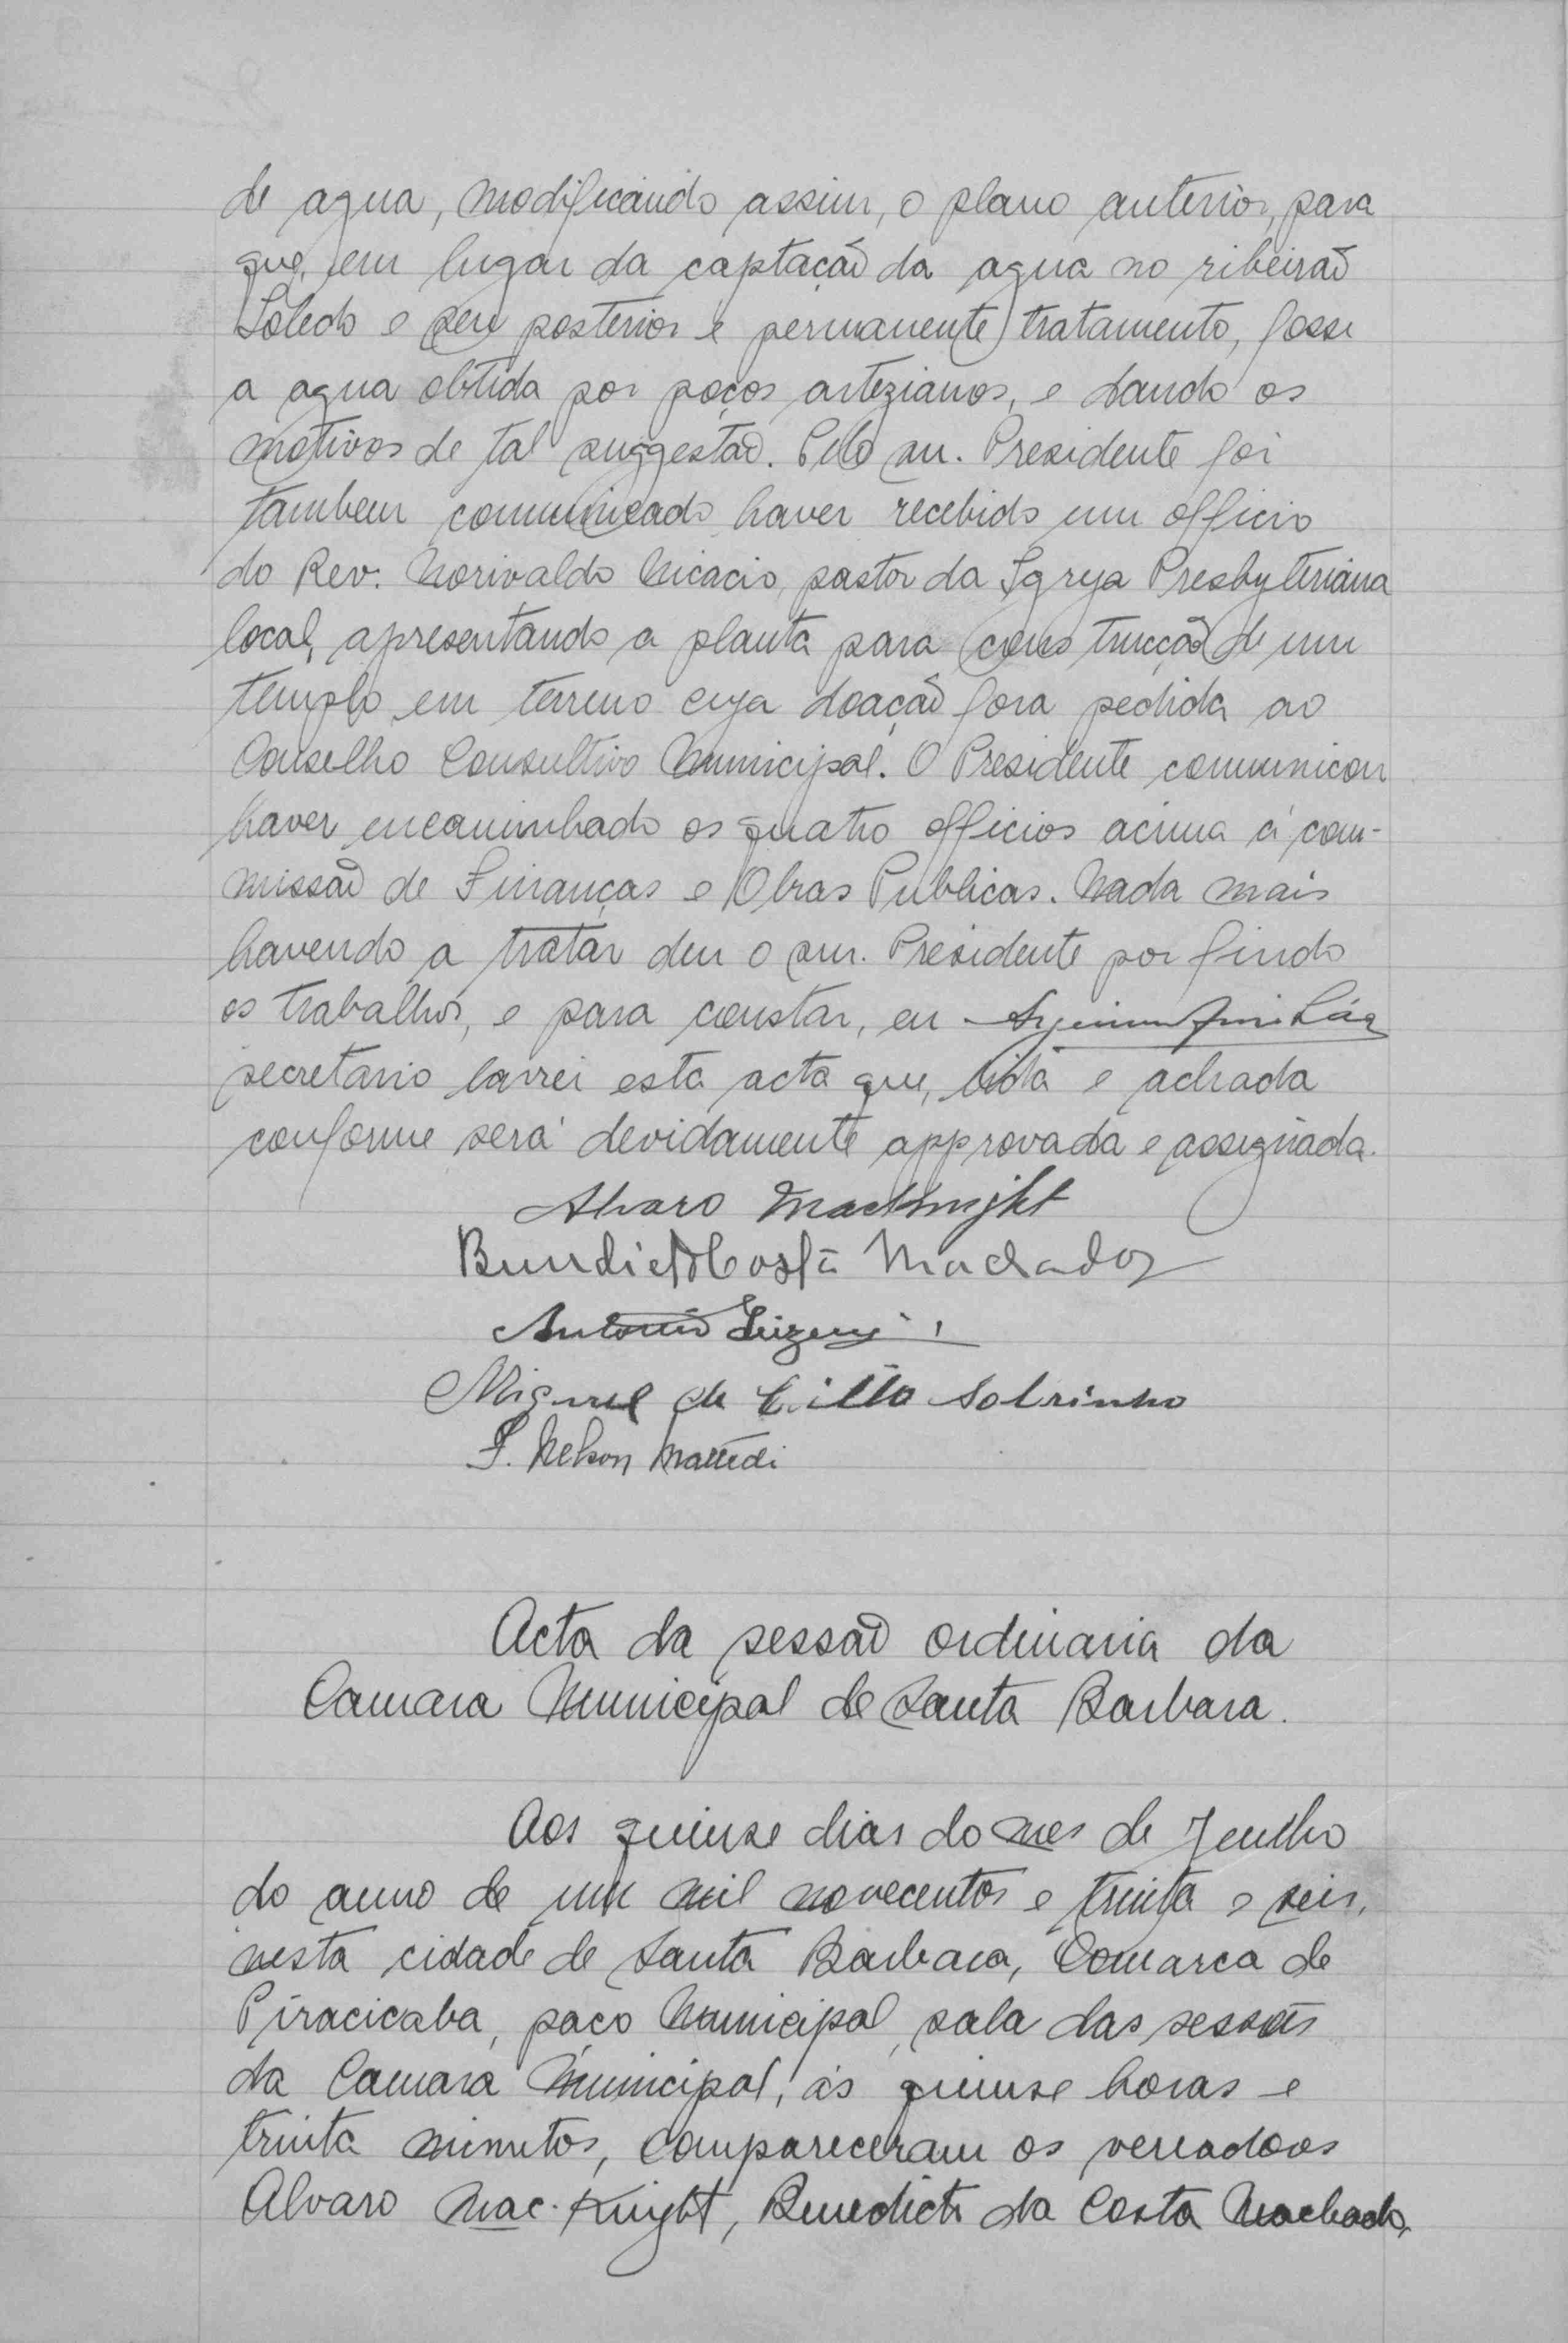 de agua, modificando assim, o plano anterior, para
que, em lugar da captação da agua no ribeirão
Toledo e seu posterior e permanente tratamento, fosse
a agua obtida por poços artezianos, e dando os
motivos de tal suggestão. Pelo snr. Presidente foi
tambem comunicado haver recebido um officio
do Rev. Norivaldo Nicacio, pastor da Igreja Presbyteriana
local, apresentando a planta para construcção de um
templo em terreno cuja doação fora pedida ao
Conselho Consultivo Municipal. O Presidente communicou
haver encaminhado os quatro officios acima á com-
missão de Finanças e Obras Publicas. Nada mais
havendo a tratar deu o snr. Presidente por findo
os trabalhos, e para constar, eu
secretario lavrei esta acta que, lida e achada
conforme será devidamente approvada e assignada.
Alvaro Macknight
Benedicto Costa Machado
Antonio
Miguel de Cillo Sobrinho
Nelson Mattedi
Acta da sessão ordinaria da
Camara Municipal de Santa Barbara.
Aos quinse dias do mes de Julho
do anno de um mil novecentos e trinta e seis,
nesta cidade de Santa Barbara, Comarca de
Piracicaba, paço Municipal, sala das sessões
da Camara Municipal, ás quinse horas e
trinta minutos, compareceram os vereadores
Alvaro Mac-Knight, Benedicto da Costa Machado,